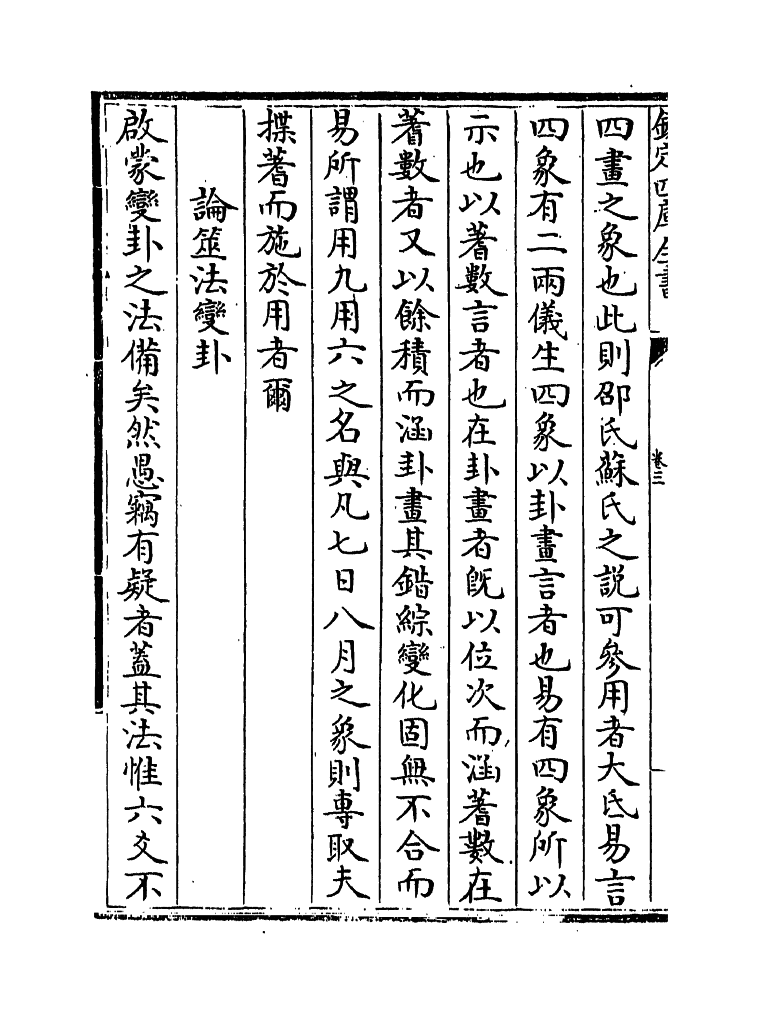 欽定四庫全書
卷三
四畫之象也此則邵氏蘇氏之説可參用者大氐易言
四象有二兩儀生四象以卦畫言者也易有四象所以
示也以蓍數言者也在卦畫者旣以位次而涵蓍數在
蓍數者又以餘積而涵卦畫其錯綜變化固無不合而
易所謂用九用六之名與凡七日八月之象則專取夫
揲蓍而施於用者爾
論筮法變卦
啟蒙變卦之法備矣然愚竊有疑者蓋其法惟六爻不